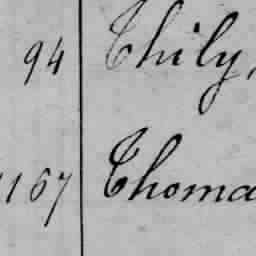 94 Thily,
1167 Thoma